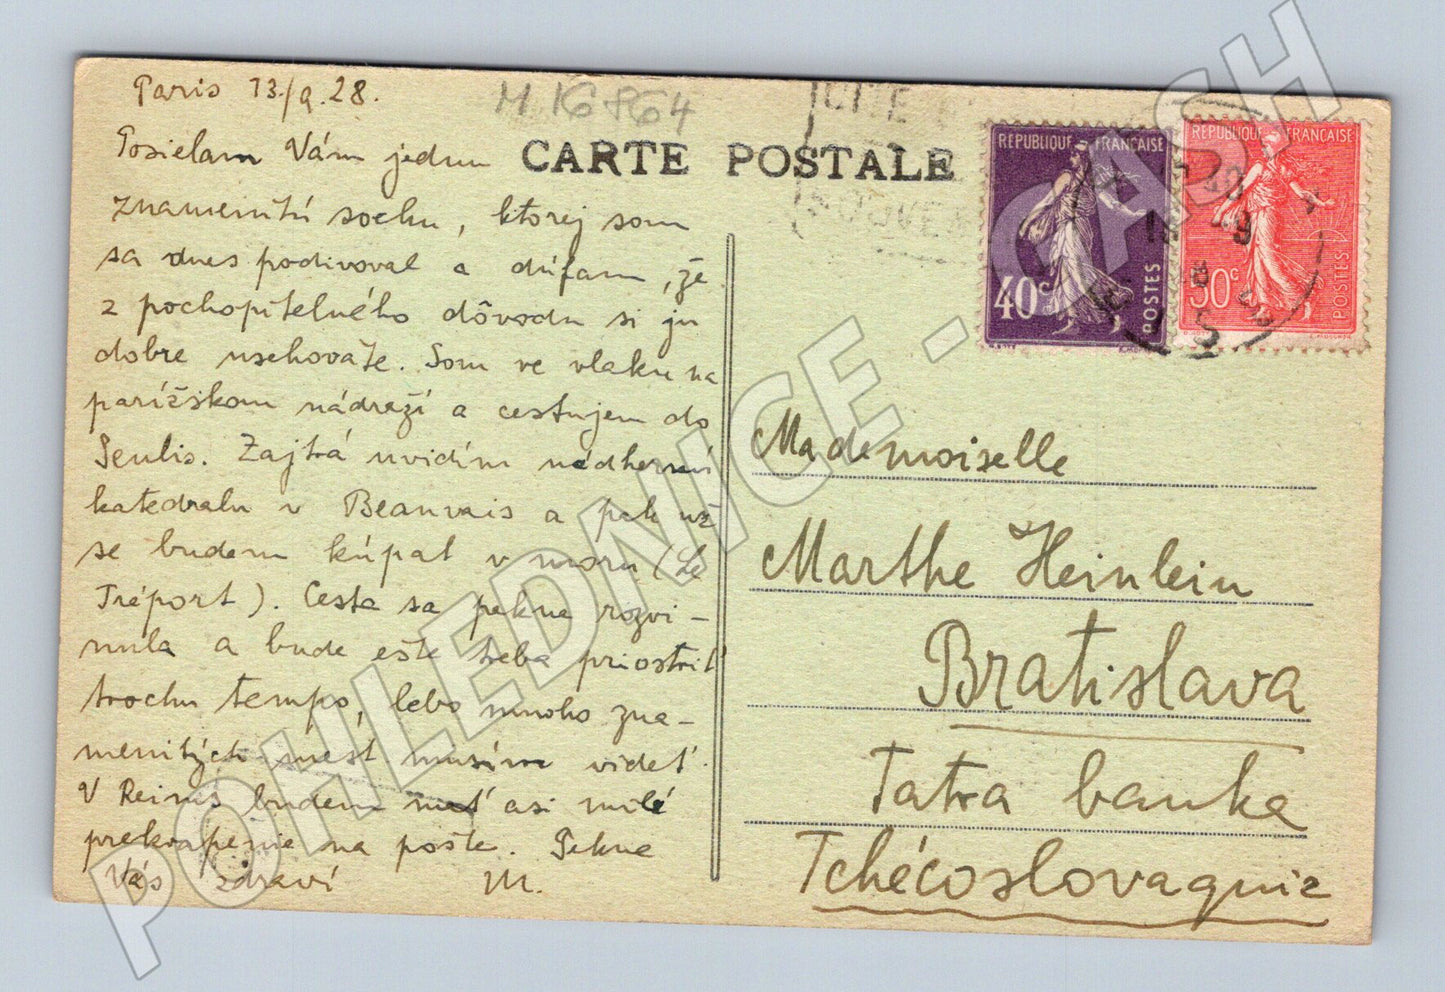 Paris 13./9.28.
M.16864
Posielam Vám jednu
CARTE POSTALE
znamenitú sochu, ktorej som
sa dnes podivoval a dúfam, že
z pochopitelného dôvodu si ju
dobre uschováte. Som ve vlaku na
parížskom nádraží a cestujem do
Senlis. Zajtrá uvidím nádhernú
katedralu v Beauvais a pak už
se budem kúpat v moru (Le
Tréport). Cesta sa pekne rozvi-
nula a bude ešte treba priostriť
trochu tempo, lebo mnoho zna-
menitých miest musím videť.
V Reims budem mať asi milé
prekvapenie na pošte. Pekne
Vás zdraví M.
REPUBLIQUE FRANÇAISE
40c
POSTES
REPUBLIQUE FRANÇAISE
50c
POSTES
Mademoiselle
Marthe Heinlein
Bratislava
Tatra banka
Tchécoslovaquie
POHLEDNICE - CASH